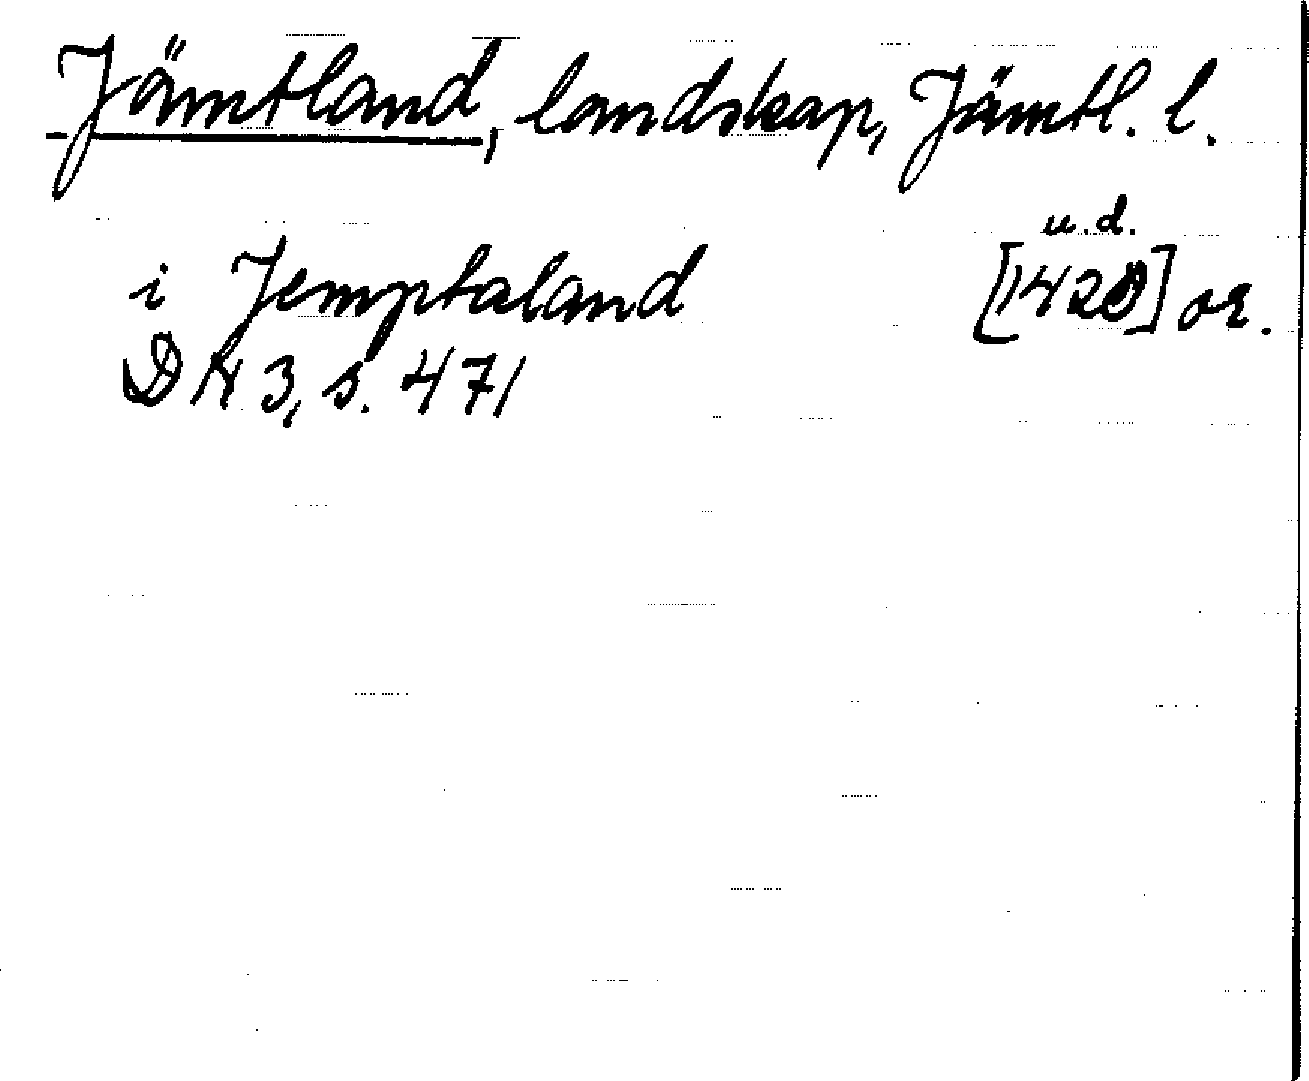 Jämtland, landskap, Jämtl. l.
u.d.
i Jemptaland [1420] or.
DN 3, s. 471